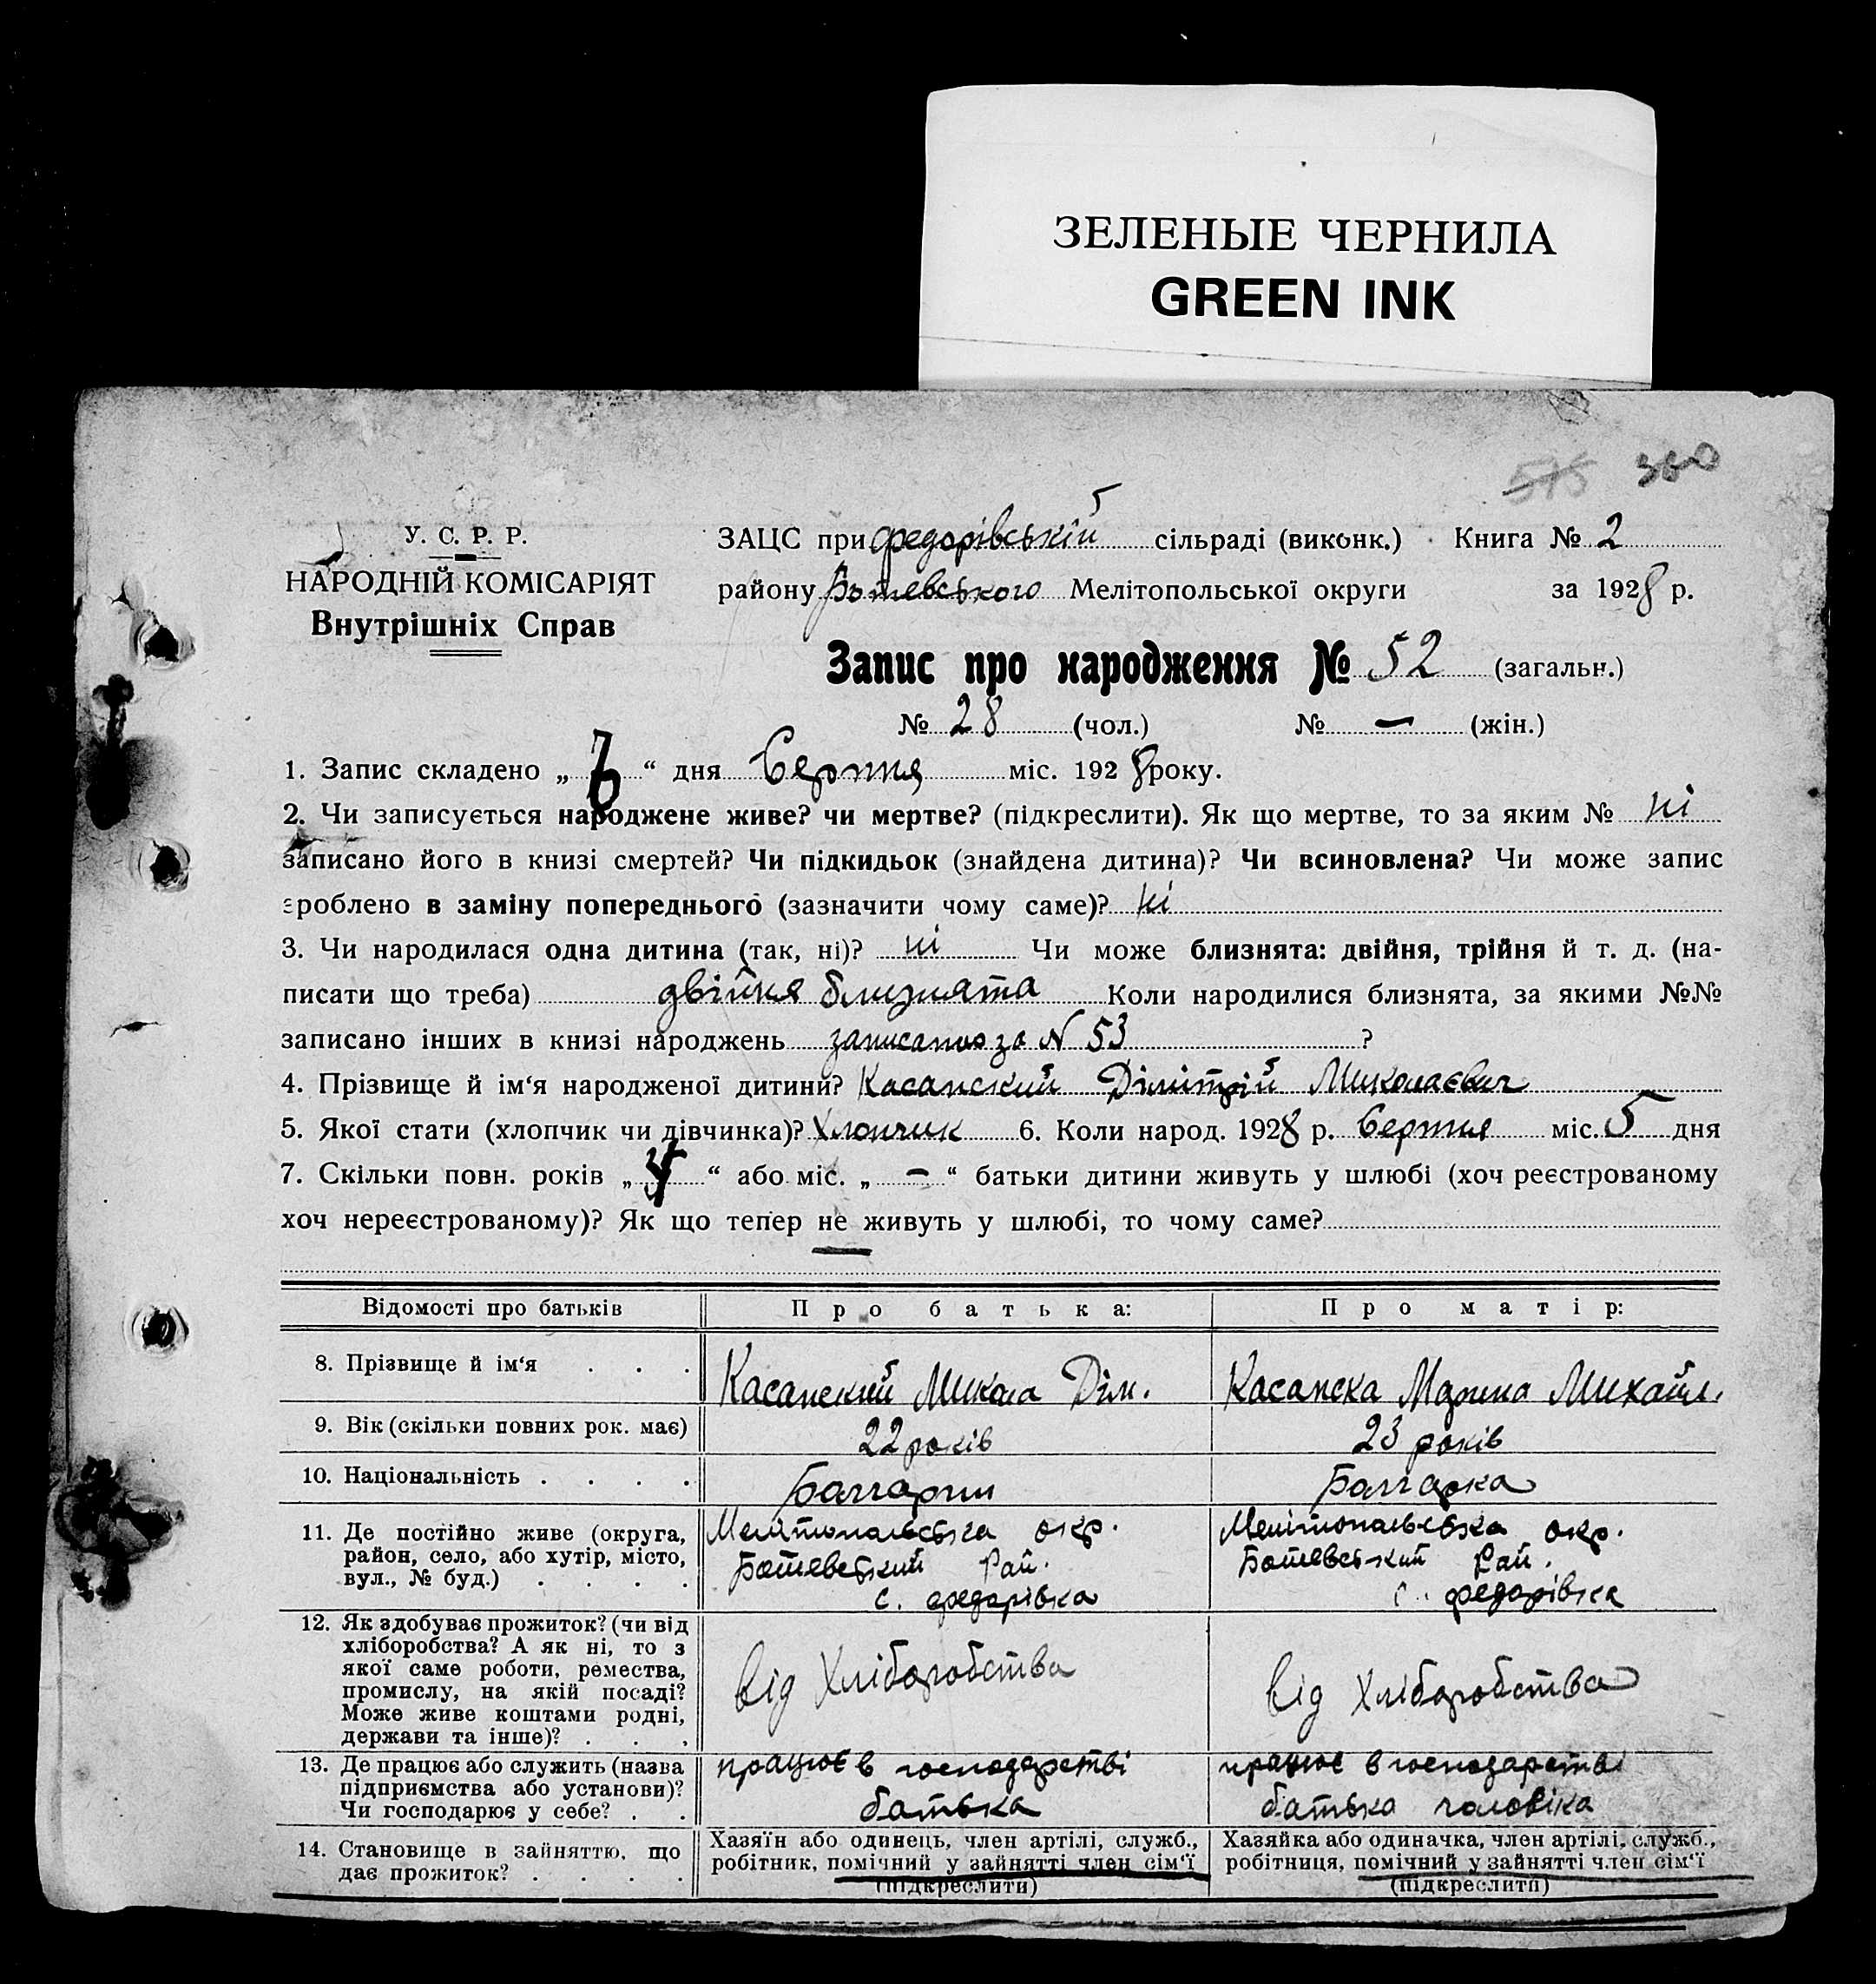 ЗЕЛЕНЫЕ ЧЕРНИЛА
GREEN INK
575 360
У. С. Р. Р.
НАРОДНІЙ КОМІСАРІЯТ
Внутрішніх Справ
ЗАЦС при Федорівській сільраді (виконк.) Книга № 2
району Ботевського Мелітопольської округи за 1928 р.
Запис про народження № 52 (загальн.)
№ 28 (чол.) № — (жін.)
1. Запис складено „ “ дня Серпня міс. 1928 року.
2. Чи записується народжене живе? чи мертве? (підкреслити). Як що мертве, то за яким № ні
записано його в книзі смертей? Чи підкидьок (знайдена дитина)? Чи всиновлена? Чи може запис
зроблено в заміну попереднього (зазначити чому саме)? ні
3. Чи народилася одна дитина (так, ні)? ні Чи може близнята: двійня, трійня й т. д. (на-
писати що треба) двійня близнята Коли народилися близнята, за якими №№
записано інших в книзі народжень записано за N 53 ?
4. Прізвище й ім‘я народженої дитини? Касапский Дімітрій Миколаєвич
5. Якої стати (хлопчик чи дівчинка)? Хлопчик 6. Коли народ. 1928 р. Серпня міс. 5 дня
7. Скільки повн. років „ “ або міс. „ — “ батьки дитини живуть у шлюбі (хоч реєстрованому
хоч нереєстрованому)? Як що тепер не живуть у шлюбі, то чому саме?
Відомості про батьків Про батька: Про матір:
8. Прізвище й ім‘я . . . Касапский Микола Дім. Касапска Марина Михайл.
9. Вік (скільки повних рок. має) 22 років 23 років
10. Національність . . . . Болгарин Болгарка
11. Де постійно живе (округа,
район, село, або хутір, місто,
вул., № буд.) . . . .
Мелітопольська окр.
Ботевський Рай.
с. Федорівка
Мелітопольська окр.
Ботевський Рай.
с. Федорівка
12. Як здобуває прожиток? (чи від
хліборобства? А як ні, то з
якої саме роботи, ремества,
промислу, на якій посаді?
Може живе коштами родні,
держави та інше)? . . .
від Хліборобства
від Хліборобства
13. Де працює або служить (назва
підприємства або установи)?
Чи господарює у себе? . .
працює в господарстві
батька
працює в господарстві
батька чоловіка
14. Становище в зайняттю, що
дає прожиток? . . . .
Хазяїн або одинець, член артілі, служб.,
робітник, помічний у зайнятті член сім‘ї
(підкреслити)
Хазяйка або одиначка, член артілі, служб.,
робітниця, помічний у зайнятті член сім‘ї
(підкреслити)